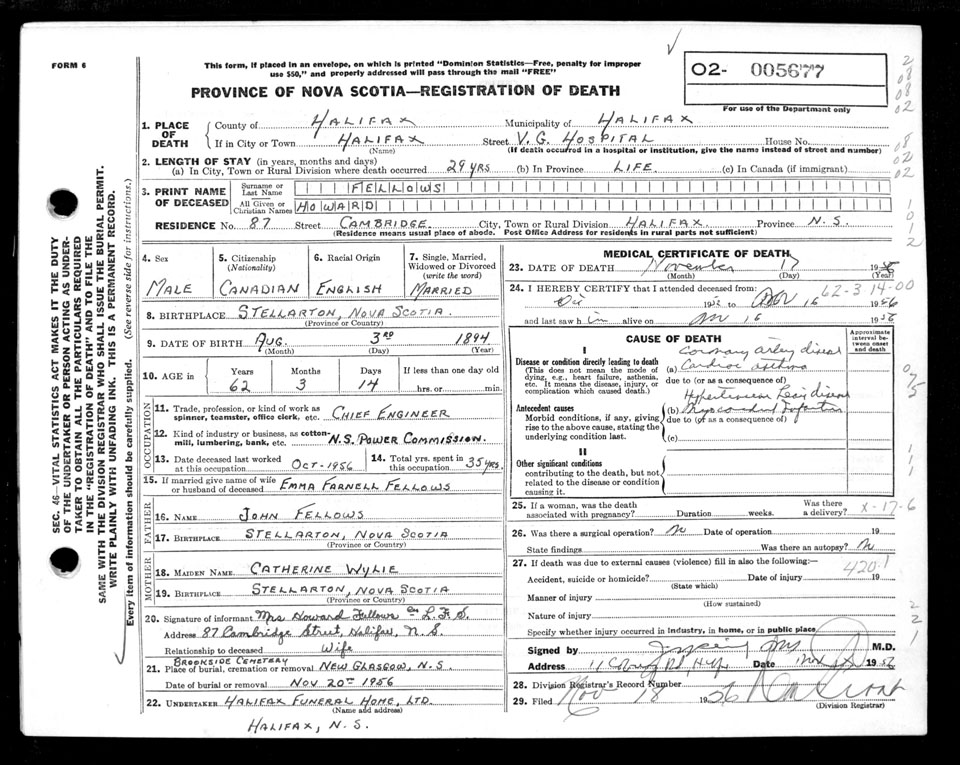 FORM 6
This form, if placed in an envelope, on which is printed "Dominion Statistics—Free, penalty for improper
use $50," and properly addressed will pass through the mail "FREE"
O2- 005677
For use of the Department only
PROVINCE OF NOVA SCOTIA—REGISTRATION OF DEATH
SEC. 46—VITAL STATISTICS ACT MAKES IT THE DUTY
OF THE UNDERTAKER OR PERSON ACTING AS UNDER-
TAKER TO OBTAIN ALL THE PARTICULARS REQUIRED
IN THE "REGISTRATION OF DEATH" AND TO FILE THE
SAME WITH THE DIVISION REGISTRAR WHO SHALL ISSUE THE BURIAL PERMIT.
WRITE PLAINLY WITH UNFADING INK. THIS IS A PERMANENT RECORD.
Every item of information should be carefully supplied. (See reverse side for instructions.)
1. PLACE OF DEATH County of HALIFAX Municipality of HALIFAX
If in City or Town HALIFAX Street V. G. HOSPITAL House No.
(Name) (If death occurred in a hospital or institution, give the name instead of street and number)
2. LENGTH OF STAY (in years, months and days)
(a) In City, Town or Rural Division where death occurred 29 YRS (b) In Province LIFE. (c) In Canada (if immigrant)
3. PRINT NAME OF DECEASED Surname or Last Name FELLOWS
All Given or Christian Names HOWARD
RESIDENCE No. 87 Street CAMBRIDGE City, Town or Rural Division HALIFAX Province N. S.
(Residence means usual place of abode. Post Office Address for residents in rural parts not sufficient)
4. Sex MALE
5. Citizenship (Nationality) CANADIAN
6. Racial Origin ENGLISH
7. Single, Married, Widowed or Divorced (write the word) MARRIED
8. BIRTHPLACE STELLARTON, NOVA SCOTIA.
(Province or Country)
9. DATE OF BIRTH AUG. 3RD 1894
(Month) (Day) (Year)
10. AGE in Years Months Days If less than one day old
62 3 14 hrs. or min.
OCCUPATION
11. Trade, profession, or kind of work as spinner, teamster, office clerk, etc. CHIEF ENGINEER
12. Kind of industry or business, as cotton-mill, lumbering, bank, etc. N.S. POWER COMMISSION.
13. Date deceased last worked at this occupation OCT-1956
14. Total yrs. spent in this occupation 35 YRS.
15. If married give name of wife or husband of deceased EMMA FARNELL FELLOWS
FATHER
16. NAME JOHN FELLOWS
17. BIRTHPLACE STELLARTON, NOVA SCOTIA
(Province or Country)
MOTHER
18. MAIDEN NAME CATHERINE WYLIE
19. BIRTHPLACE STELLARTON, NOVA SCOTIA
(Province or Country)
20. Signature of informant Mrs Howard Fellows L. F. S.
Address 87 Cambridge Street, Halifax, N. S.
Relationship to deceased Wife
21. BROOKSIDE CEMETERY
Place of burial, cremation or removal NEW GLASGOW, N. S.
Date of burial or removal NOV 20TH 1956
22. UNDERTAKER HALIFAX FUNERAL HOME, LTD.
(Name and address)
HALIFAX, N. S.
MEDICAL CERTIFICATE OF DEATH
23. DATE OF DEATH November 17 1956
(Month) (Day) (Year)
62-3 14-00
24. I HEREBY CERTIFY that I attended deceased from:
19 to 16 1956
and last saw him alive on 16 1956
CAUSE OF DEATH
Approximate interval between onset and death
I
Disease or condition directly leading to death
(This does not mean the mode of dying, e.g., heart failure, asthenia, etc. It means the disease, injury, or complication which caused death.)
Coronary artery disease
(a) Cardiac asthma
due to (or as a consequence of)
Antecedent causes
Morbid conditions, if any, giving rise to the above cause, stating the underlying condition last.
Hypertensive disease
(b) Myocardial Infarction
due to (or as a consequence of)
(c)
II
Other significant conditions
contributing to the death, but not related to the disease or condition causing it.
25. If a woman, was the death associated with pregnancy? Duration weeks. Was there a delivery?
X-17-6
26. Was there a surgical operation? No Date of operation 19
State findings Was there an autopsy? No
27. If death was due to external causes (violence) fill in also the following:
420.1
Accident, suicide or homicide? Date of injury 19
(State which)
Manner of injury
(How sustained)
Nature of injury
Specify whether injury occurred in industry, in home, or in public place
Signed by M.D.
Address Date 1956
28. Division Registrar's Record Number
29. Filed Nov 18 1956
(Division Registrar)